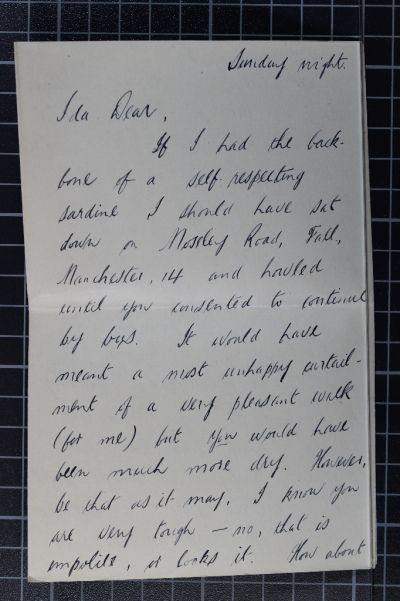 Sunday night.
Ida Dear,
If I had the back-
bone of a self-respecting
sardine I should have sat
down on Mossley Road, Fall,
Manchester, 14 and howled
until you consented to continue
by bus. It would have
meant a most unhappy curtail-
ment of a very pleasant walk
(for me) but you would have
been much more dry. However,
be that as it may, I know you
are very tough – no, that is
impolite, or looks it. How about